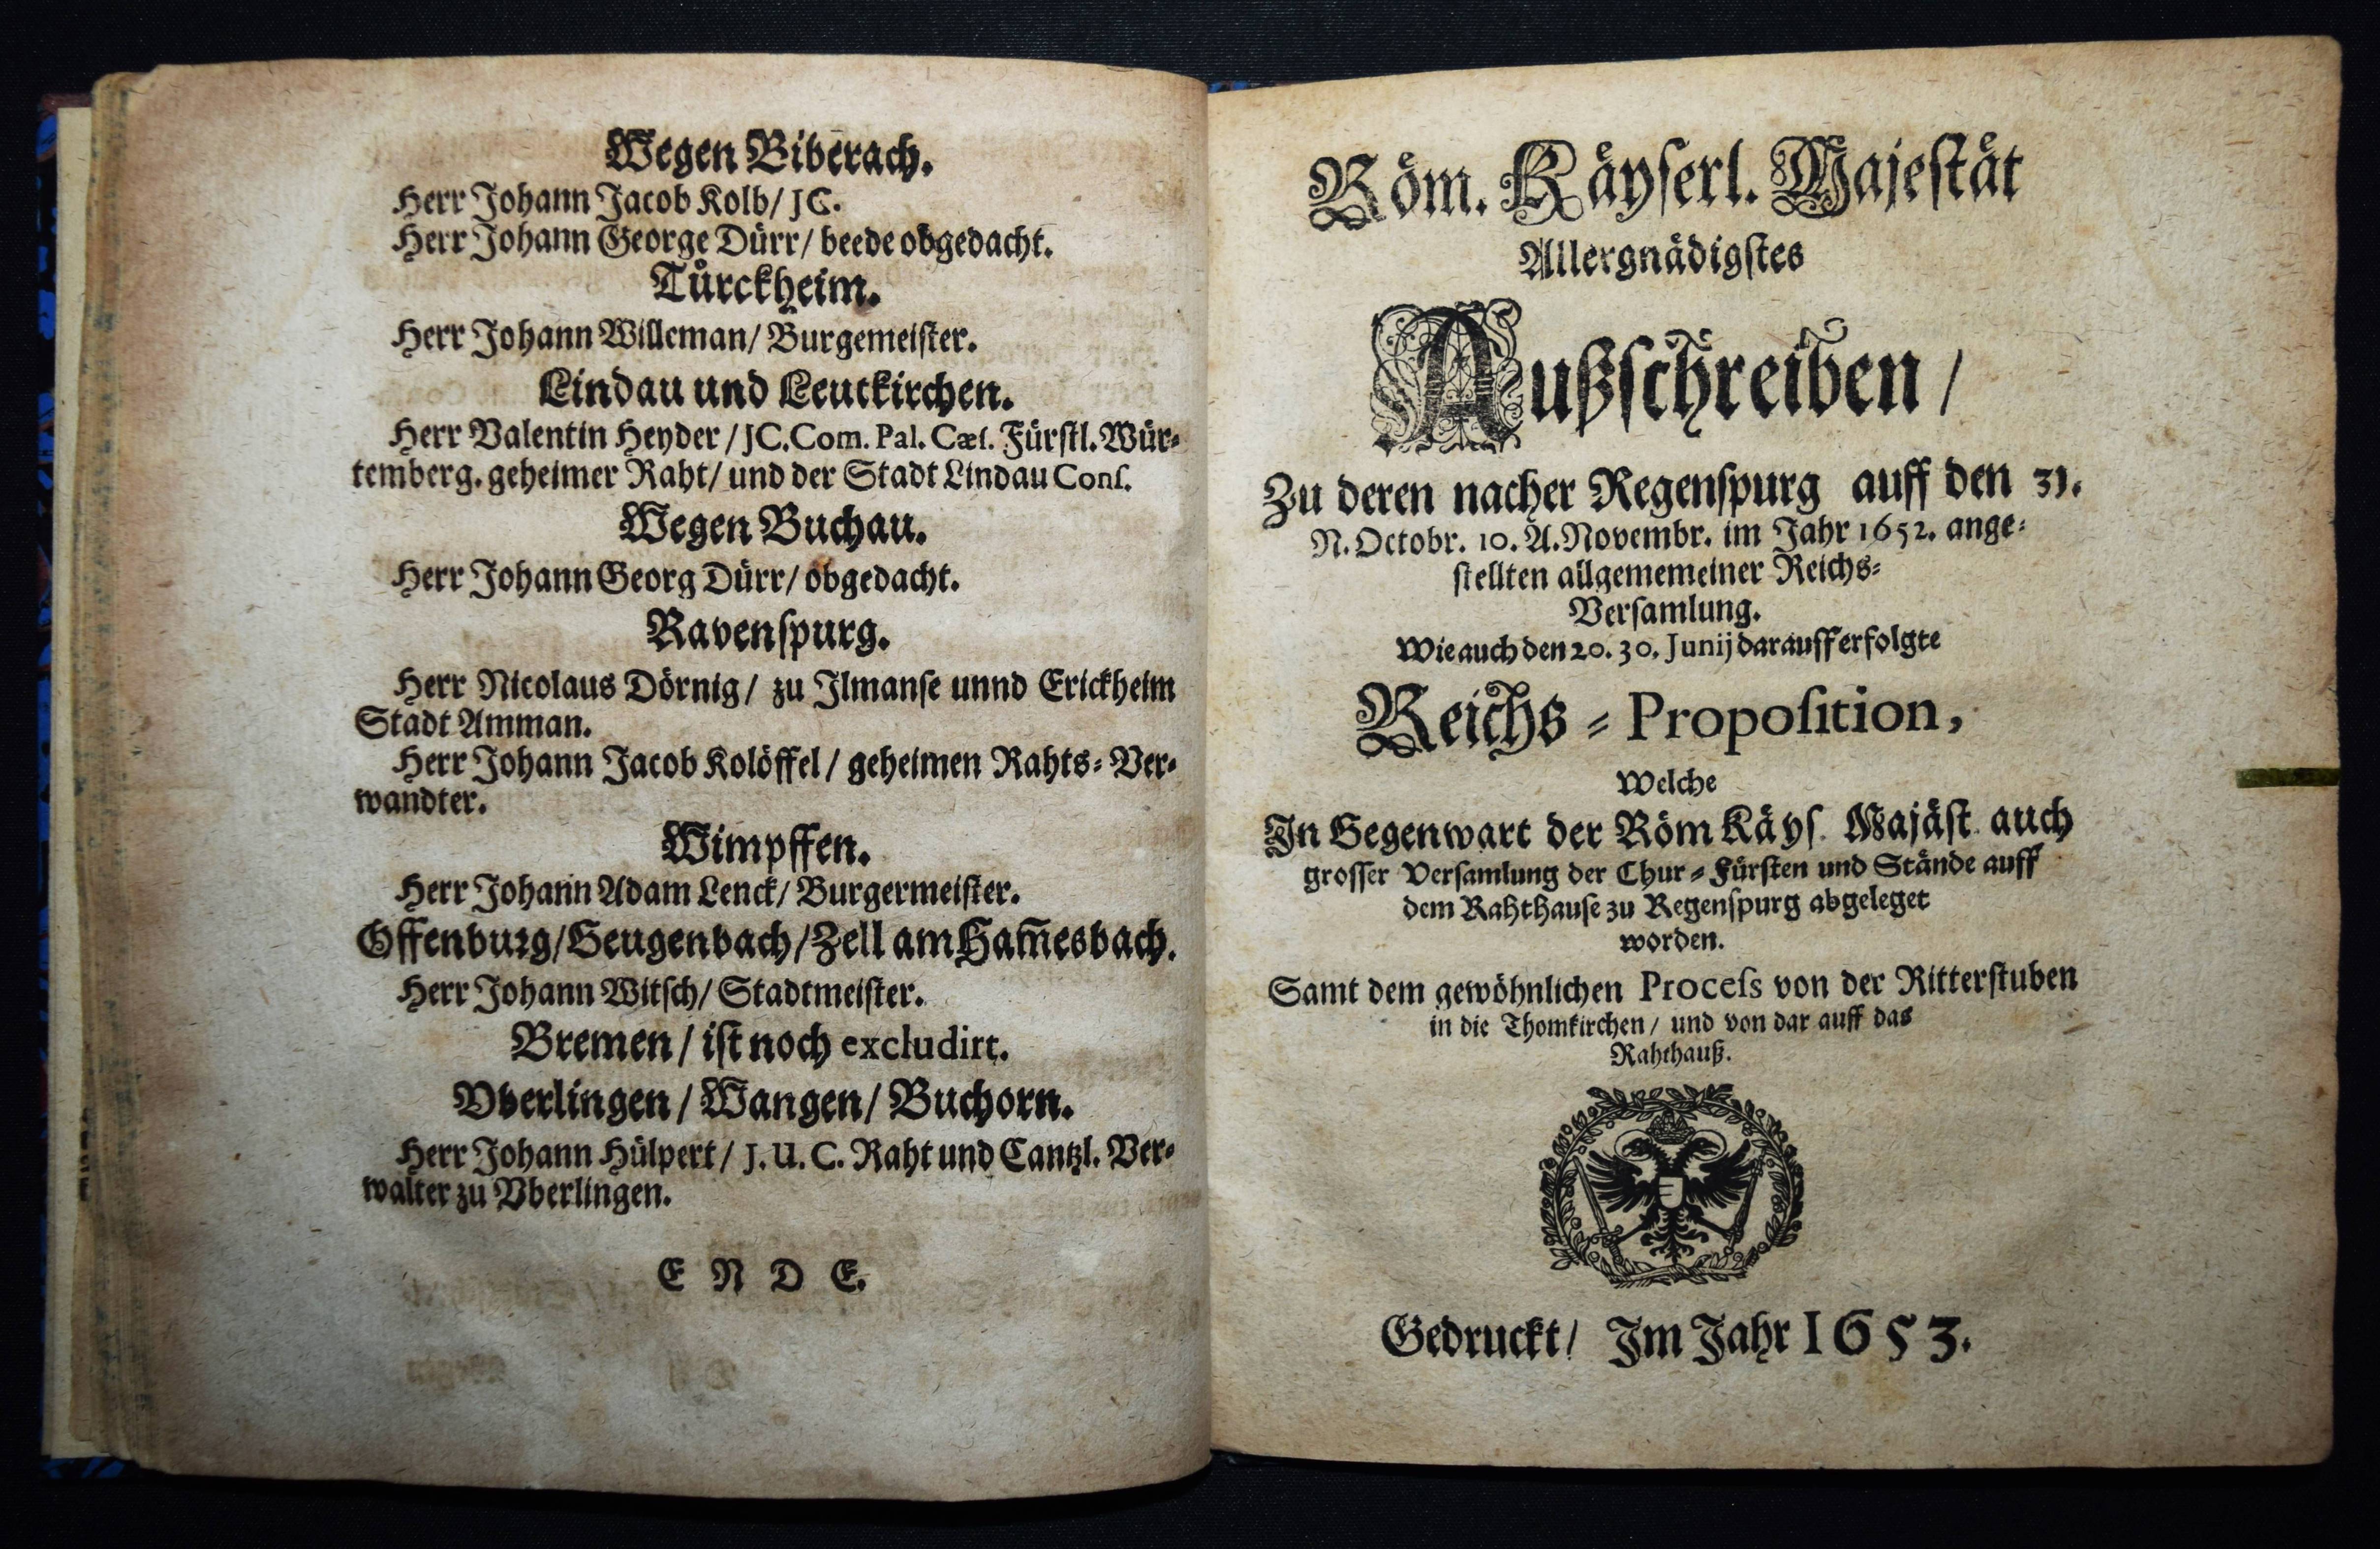 Wegen Biberach.
Herr Johann Jacob Kolb/ JC.
Herr Johann George Dürr/ beede obgedacht.
Tůrckheim.
Herr Johann Willeman/ Burgemeiſter.
Lindau und Leutkirchen.
Herr Valentin Heyder/ JC. Com. Pal. Cæſ. Fürſtl. Wür-
temberg. geheimer Raht/ und der Stadt Lindau Conſ.
Wegen Buchau.
Herr Johann Georg Dürr/ obgedacht.
Ravenſpurg.
Herr Nicolaus Dörnig/ zu Ilmanſe unnd Erickheim
Stadt Amman.
Herr Johann Jacob Kolöffel/ geheimen Rahts-Ver-
wandter.
Wimpffen.
Herr Johann Adam Lenck/ Burgermeiſter.
Offenburg/Geugenbach/Zell am Ham̃esbach.
Herr Johann Witſch/ Stadtmeiſter.
Bremen/ iſt noch excludirt.
Vberlingen/ Wangen/ Buchorn.
Herr Johann Hülpert/ J. U. C. Raht und Cantzl. Ver-
walter zu Vberlingen.
E N D E.
Röm. Käyſerl. Majeſtåt
Allergnådigſtes
Außſchreiben/
Zu deren nacher Regenſpurg auff den 31.
N. Octobr. 10. A. Novembr. im Jahr 1652. ange-
ſtellten allgememeiner Reichs-
Verſamlung.
Wie auch den 20. 30. Junij darauff erfolgte
Reichs-Propoſition,
Welche
In Gegenwart der Röm Käyſ. Majäſt. auch
groſſer Verſamlung der Chur-Fürſten und Stånde auff
dem Rahthauſe zu Regenſpurg abgeleget
worden.
Samt dem gewöhnlichen Proceſs von der Ritterſtuben
in die Thomkirchen/ und von dar auff das
Rahthauß.
Gedruckt/ Im Jahr 1653.